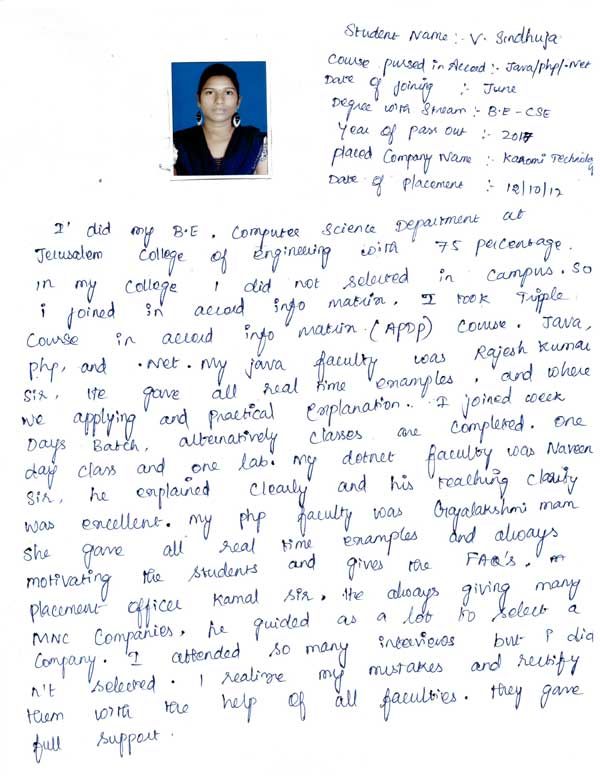 Student Name :- V. Sindhuja
Course pursed in Accord :- Java/php/.Net
Date of Joining :- June
Degree with Stream :- B.E - CSE
Year of pass out :- 2017
placed Company Name :- Kaaomi Technology
Date of placement :- 12/10/17
I' did my B.E. Computer Science Department at
Jerusalem College of engineering with 75 percentage.
in my College i did not selected in Campus. So
i joined in accord info matrix. I took Tripple
Course in accord info matrix. (APDP) Course. Java,
php, and .Net. My java faculty was Rajesh Kumar
Sir, He gave all real time examples, and where
we applying and practical explanation.. I joined week
Days Batch, alternatively classes are completed. one
day class and one lab. my dotnet faculty was Naveen
Sir, he explained Clearly and his teaching Clarity
was excellent. my php faculty was Gajalakshmi mam
She gave all real time examples and always
motivating the students and gives the FAQ's.
placement officer Kamal Sir. He always giving many
MNC Companies, he guided as a lot to select a
Company. I attended so many interviews but i did
n't selected. i realize my mistakes and rectify
them with the help of all faculties. they gave
full support.